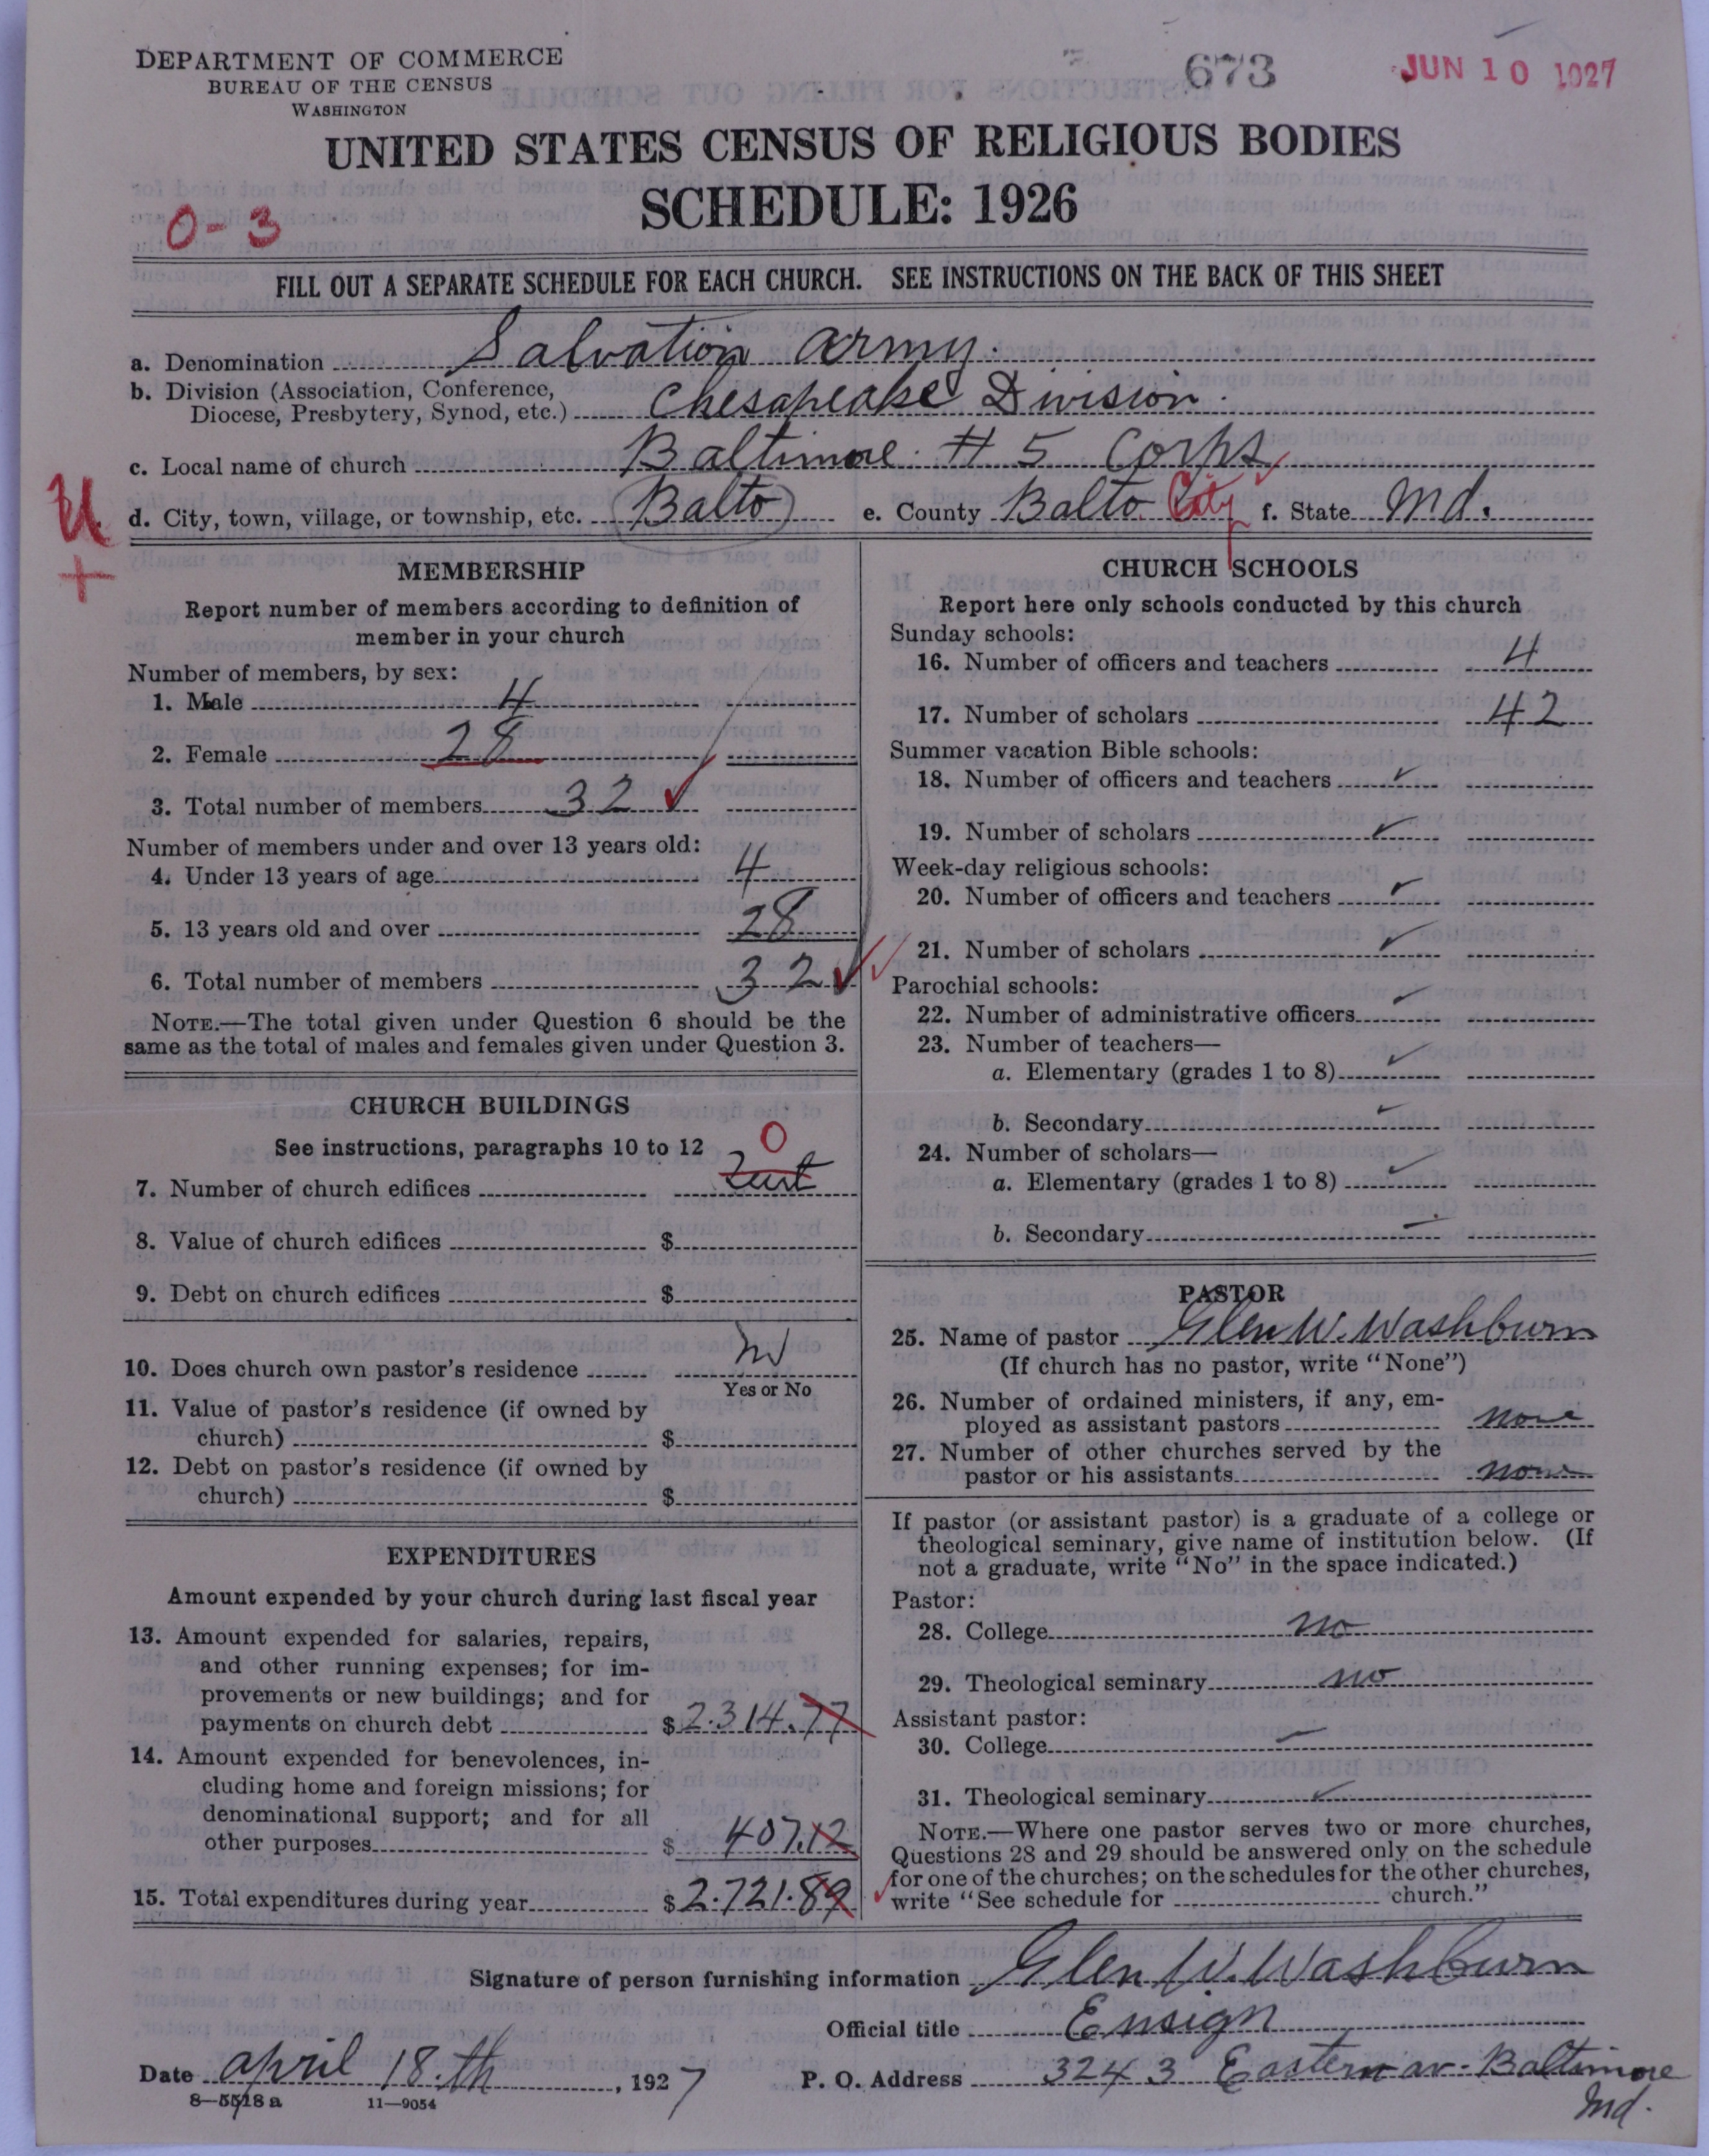 DEPARTMENT OF COMMERCE
BUREAU OF THE CENSUS
WASHINGTON
673
JUN 10 1927
UNITED STATES CENSUS OF RELIGIOUS BODIES
SCHEDULE: 1926
0-3
FILL OUT A SEPARATE SCHEDULE FOR EACH CHURCH. SEE INSTRUCTIONS ON THE BACK OF THIS SHEET
a. Denomination Salvation Army.
b. Division (Association, Conference,
Diocese, Presbytery, Synod, etc.) Chesapeake Division.
c. Local name of church Baltimore. # 5 Corps
U
d. City, town, village, or township, etc. (Balto) e. County Balto. City f. State Md.
+
MEMBERSHIP
Report number of members according to definition of
member in your church
Number of members, by sex:
1. Male 4
2. Female 28
3. Total number of members 32 ✓
Number of members under and over 13 years old:
4. Under 13 years of age 4
5. 13 years old and over 28
6. Total number of members 32 ✓✓
NOTE.—The total given under Question 6 should be the
same as the total of males and females given under Question 3.
CHURCH BUILDINGS
See instructions, paragraphs 10 to 12
0
7. Number of church edifices
8. Value of church edifices $
9. Debt on church edifices $
10. Does church own pastor's residence No
Yes or No
11. Value of pastor's residence (if owned by
church) $
12. Debt on pastor's residence (if owned by
church) $
EXPENDITURES
Amount expended by your church during last fiscal year
13. Amount expended for salaries, repairs,
and other running expenses; for im-
provements or new buildings; and for
payments on church debt $ 2.314.77
14. Amount expended for benevolences, in-
cluding home and foreign missions; for
denominational support; and for all
other purposes $ 407.12
15. Total expenditures during year $ 2.721.89
CHURCH SCHOOLS
Report here only schools conducted by this church
Sunday schools:
16. Number of officers and teachers 4
17. Number of scholars 42
Summer vacation Bible schools:
18. Number of officers and teachers ✓
19. Number of scholars ✓
Week-day religious schools:
20. Number of officers and teachers ✓
21. Number of scholars ✓
Parochial schools:
22. Number of administrative officers ✓
23. Number of teachers—
a. Elementary (grades 1 to 8) ✓
b. Secondary ✓
24. Number of scholars—
a. Elementary (grades 1 to 8) ✓
b. Secondary —
PASTOR
25. Name of pastor Glen W. Washburn
(If church has no pastor, write "None")
26. Number of ordained ministers, if any, em-
ployed as assistant pastors none
27. Number of other churches served by the
pastor or his assistants none
If pastor (or assistant pastor) is a graduate of a college or
theological seminary, give name of institution below. (If
not a graduate, write "No" in the space indicated.)
Pastor:
28. College no
29. Theological seminary no
Assistant pastor:
30. College —
31. Theological seminary ✓
NOTE.—Where one pastor serves two or more churches,
Questions 28 and 29 should be answered only on the schedule
for one of the churches; on the schedules for the other churches,
✓ write "See schedule for church."
Signature of person furnishing information Glen W. Washburn
Official title Ensign
Date April 18.th, 1927 P. O. Address 3243 Eastern av. Baltimore
Md.
8—5518 a 11—9054